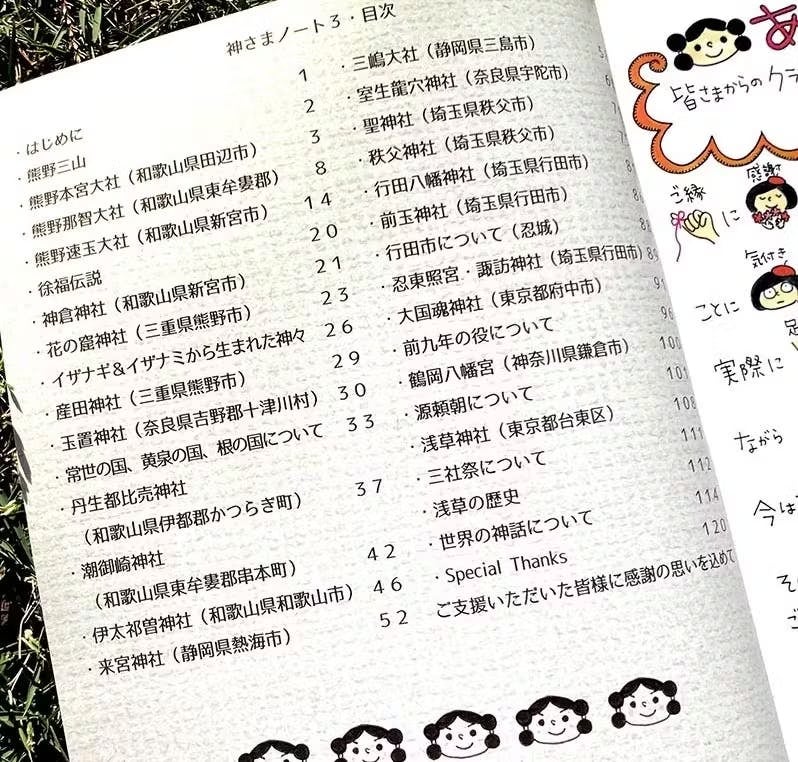 神さまノート3・目次
・はじめに 1
・熊野三山 2
・熊野本宮大社(和歌山県田辺市) 3
・熊野那智大社(和歌山県東牟婁郡) 8
・熊野速玉大社(和歌山県新宮市) 14
・徐福伝説 20
・神倉神社(和歌山県新宮市) 21
・花の窟神社(三重県熊野市) 23
・イザナギ&イザナミから生まれた神々 26
・産田神社(三重県熊野市) 29
・玉置神社(奈良県吉野郡十津川村) 30
・常世の国、黄泉の国、根の国について 33
・丹生都比売神社
(和歌山県伊都郡かつらぎ町) 37
・潮御崎神社
(和歌山県東牟婁郡串本町) 42
・伊太祁曽神社(和歌山県和歌山市) 46
・来宮神社(静岡県熱海市) 52
・三嶋大社(静岡県三島市)
・室生龍穴神社(奈良県宇陀市)
・聖神社(埼玉県秩父市)
・秩父神社(埼玉県秩父市)
・行田八幡神社(埼玉県行田市)
・前玉神社(埼玉県行田市)
・行田市について(忍城)
・忍東照宮・諏訪神社(埼玉県行田市) 89
・大国魂神社(東京都府中市)
・前九年の役について 96
・鶴岡八幡宮(神奈川県鎌倉市) 100
・源頼朝について
・浅草神社(東京都台東区) 108
・三社祭について 111
・浅草の歴史 112
・世界の神話について 114
・Special Thanks 120
ご支援いただいた皆様に感謝の思いを込めて
あ
皆さまからのクラ
ご縁 に 感謝
気付き
ことに
実際に
ながら
今は